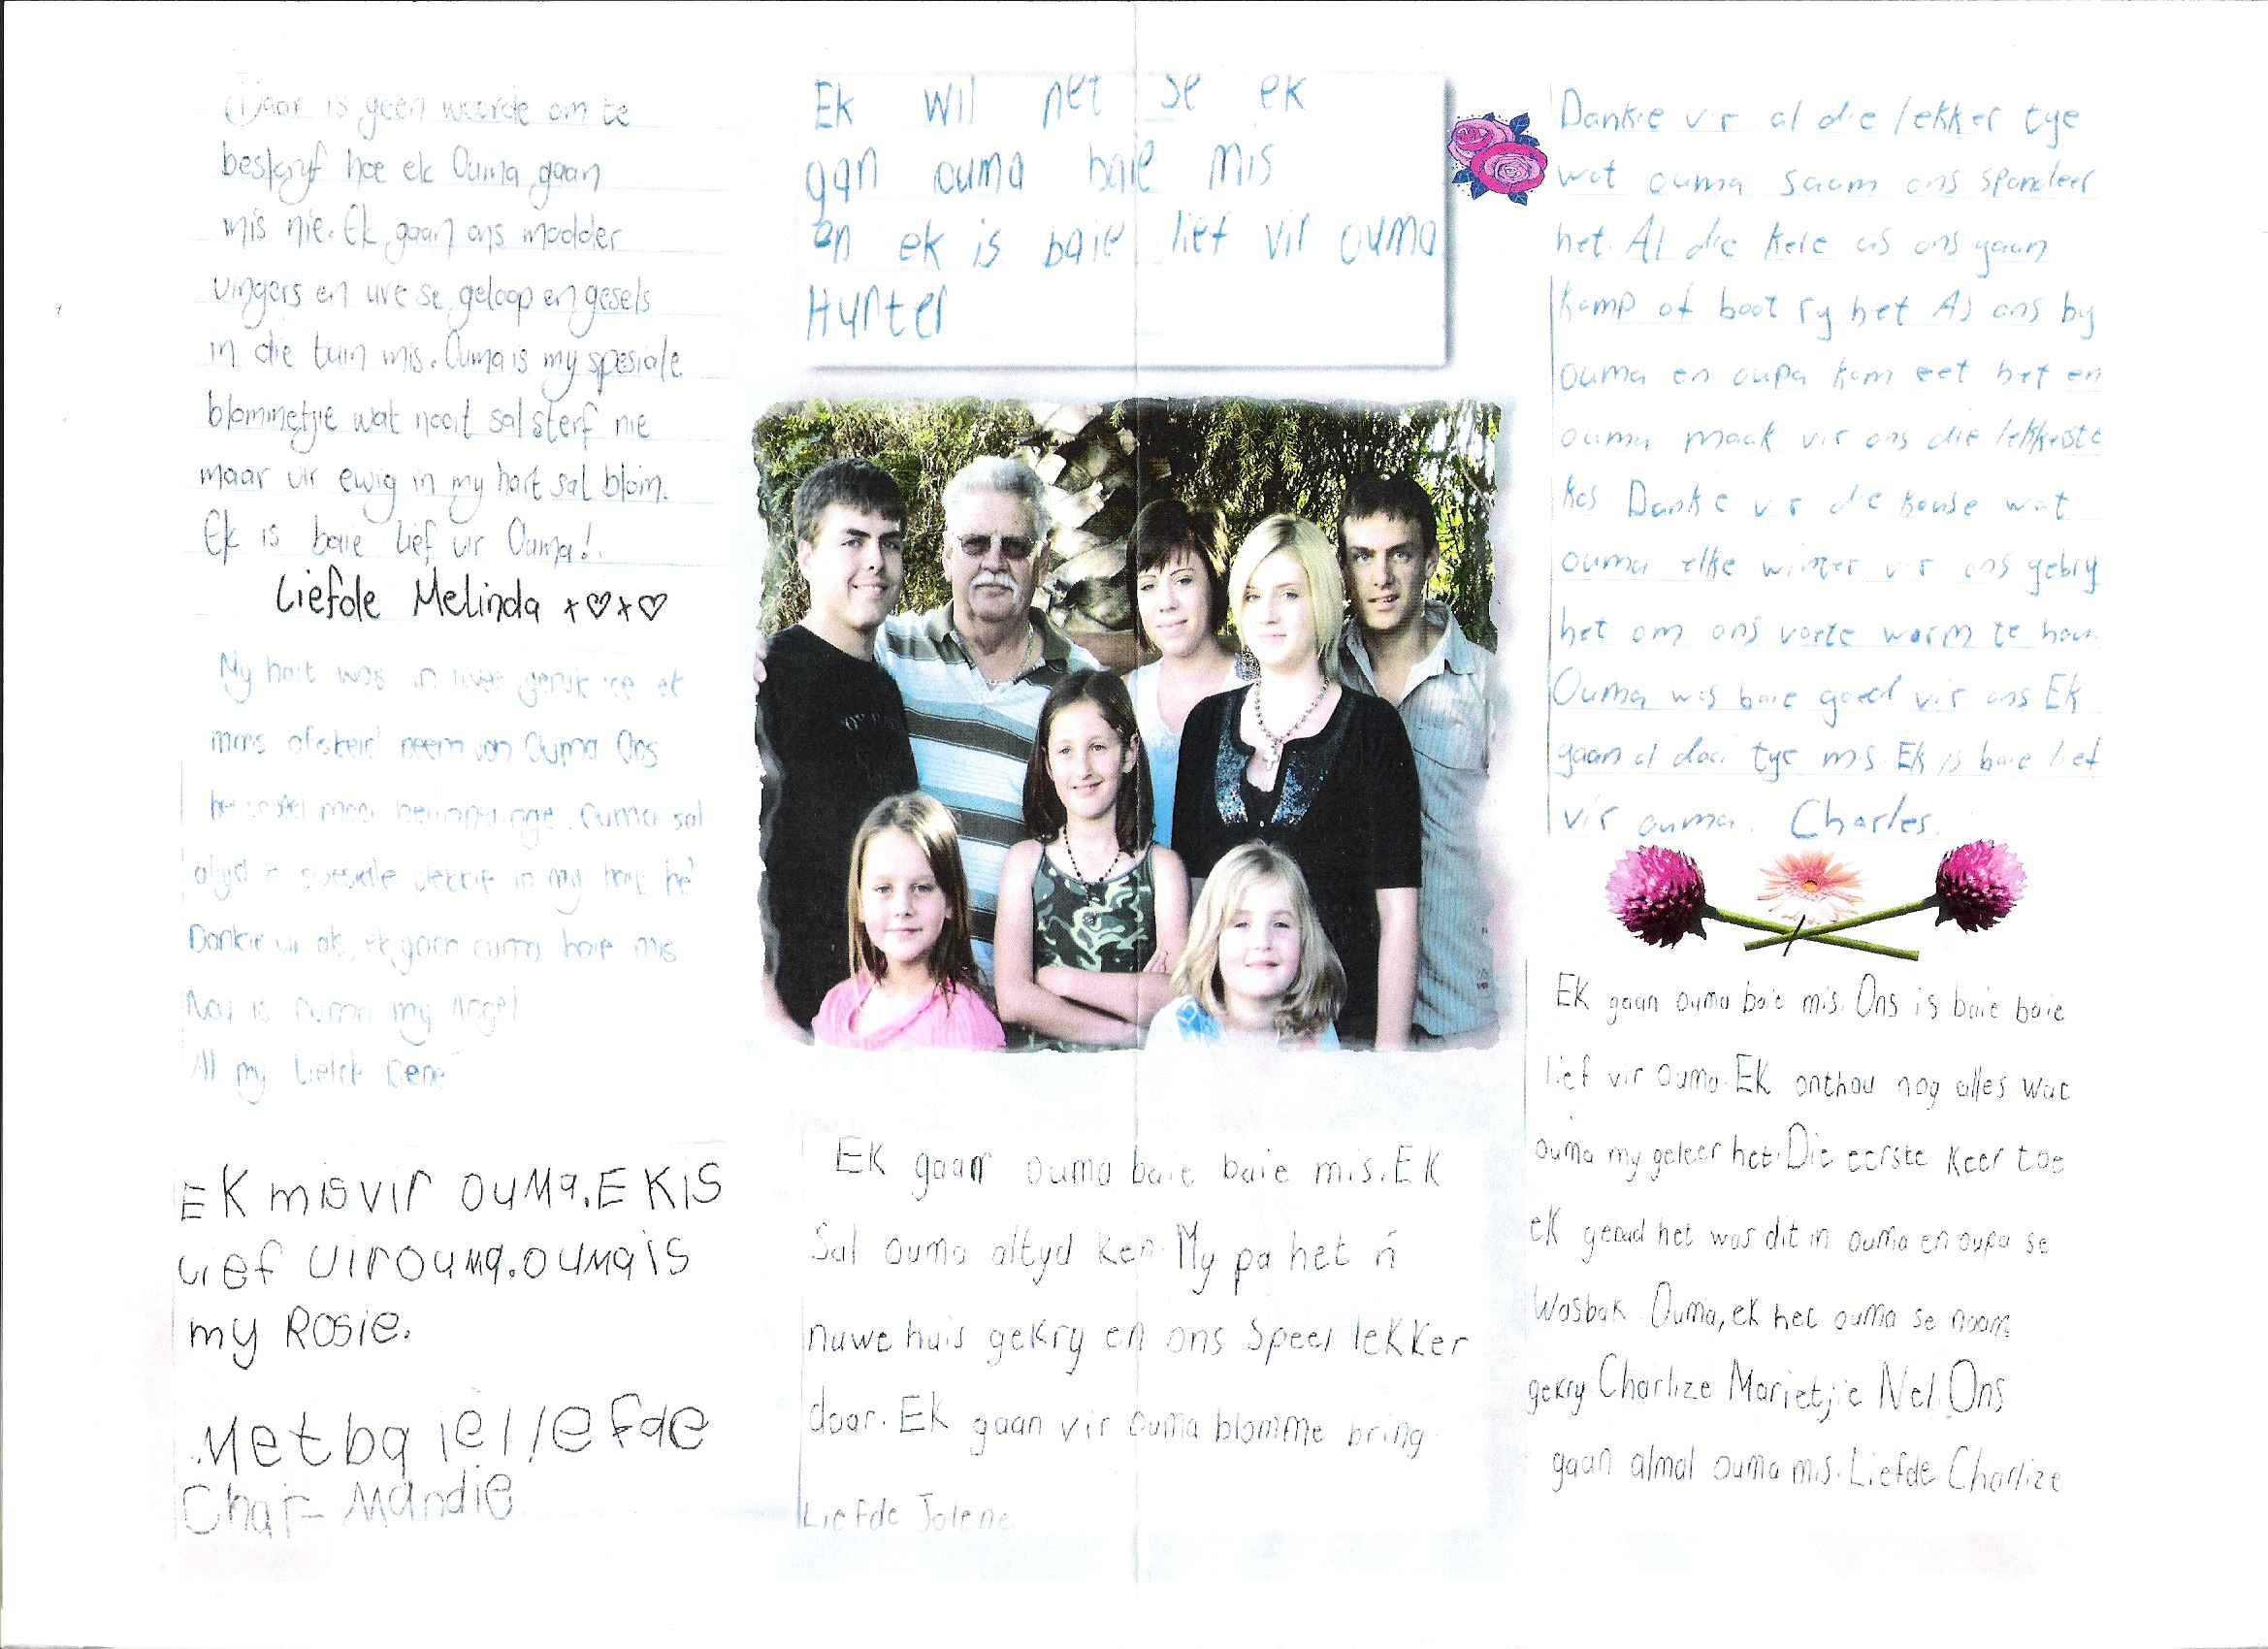 Daar is geen woorde om te
beskryf hoe ek Ouma gaan
mis nie. Ek gaan ons modder
vingers en ure se geloop en gesels
in die tuin mis. Ouma is my spesiale
blommetjie wat nooit sal sterf nie
maar vir ewig in my hart sal blom.
Ek is baie lief vir Ouma!
Liefde Melinda x♡x♡
My hart was in twee geruk toe ek
moes afskeid neem van Ouma Ons
het meer herinneringe. Ouma sal
altyd 'n spesiale plekkie in my hart hê
Dankie vir als, ek gaan ouma baie mis
Nou is Ouma my Angel
All my Liefde Rene
EK mis vir ouma. EK is
Lief vir ouma. ouma is
my Rosie.
Met baie liefde
Char-Mandie
Ek wil net se ek
gan ouma baie mis
en ek is baie lief vir ouma
Hunter
EK gaan ouma baie baie mis. EK
Sal ouma altyd ken. My pa het ń
nuwe huis gekry en ons speel lekker
daar. EK gaan vir ouma blomme bring
Liefde Jolene
Dankie vir al die lekker tye
wat ouma saam ons spandeer
het. Al die kere as ons gaan
kamp of boot ry het As ons by
ouma en oupa kom eet het en
ouma maak vir ons die lekkerste
kos Dankie vir die kouse wat
ouma elke winter vir ons gebry
het om ons voete warm te hou.
Ouma was baie goed vir ons Ek
gaan al daai tye mis. Ek is baie lief
vir ouma. Charles.
EK gaan ouma baie mis. Ons is baie baie
lief vir ouma. EK onthou nog alles wat
ouma my geleer het. Die eerste keer toe
ek gebad het was dit in ouma en oupa se
Wasbak Ouma, ek het ouma se naam
gekry Charlize Marietjie Nel. Ons
gaan almal ouma mis. Liefde Charlize